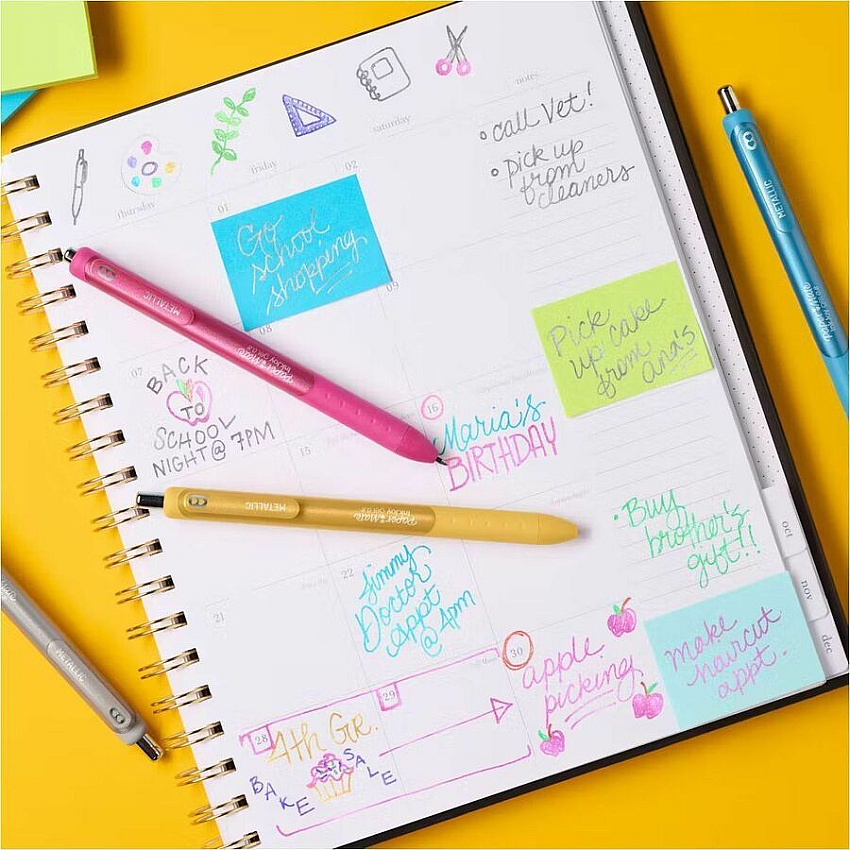 thursday
friday
saturday
notes
01
02
• call Vet!
• pick up
from
cleaners
Go
school
shopping
08
09
Pick
up cake
from
ana's
07
BACK
TO
SCHOOL
NIGHT @ 7PM
METALLIC
Paper Mate
InkJoy Gel 0.8
METALLIC
Paper Mate
15
16
Maria's
BIRTHDAY
METALLIC
Paper Mate
InkJoy Gel 0.8
• Buy
brother's
gift!!
oct
nov
dec
21
22
Jimmy
Doctor
Appt
@ 4pm
make
haircut
appt.
30
apple
picking
28
29
4th Gr.
BAKE SALE
METALLIC